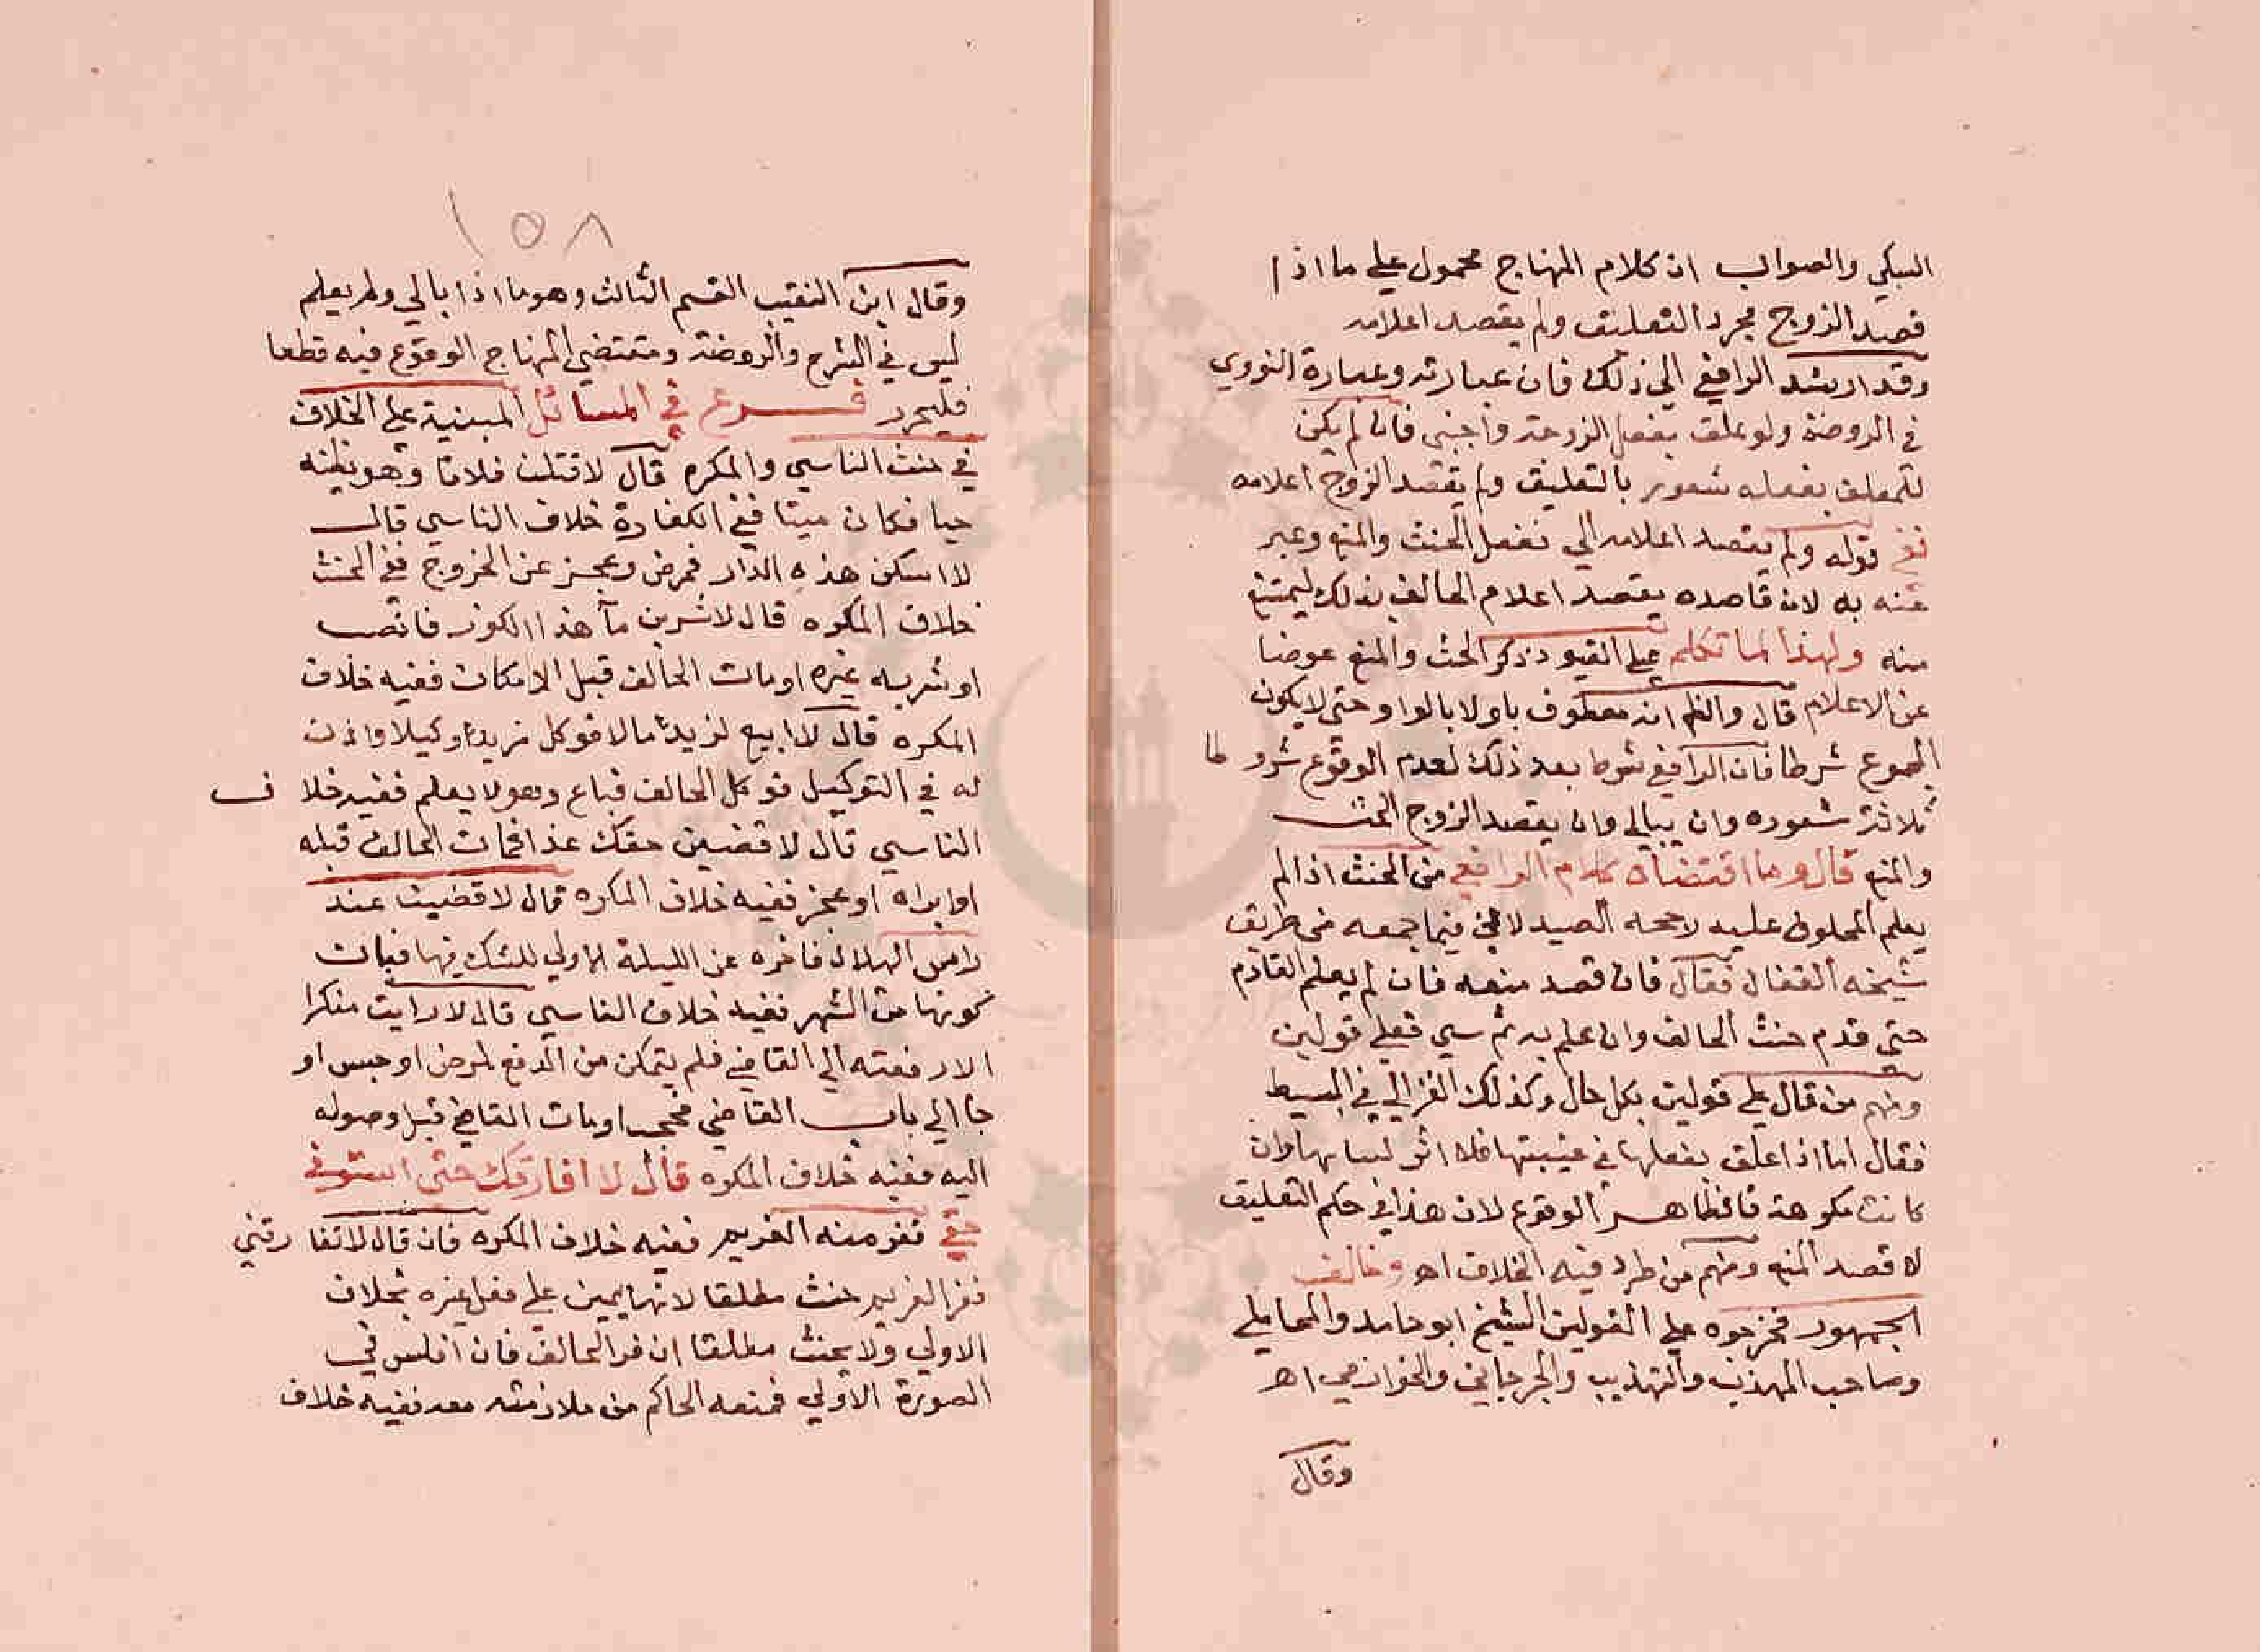 السبكي والصواب ان كلام المنهاج محمول علي ما اذا
قصد الزوج مجرد التعليق ولم يقصد اعلامه
وقد ارشد الرافعي الي ذلك فان عبارته وعبارة النووي
في الروضة ولو علق بفعل الزوجة واجنبي فان لم يكن
للمعلق بفعله شعور بالتعليق ولم يقصد الزوج اعلامه
ففي قوله ولم يقصد اعلامه الي بفعل الحنث والمنع وعبر
عنه به لان قاصده يقصد اعلام الحالف بذلك ليمتنع
منه ولهذا لما تكلم علي القيود ذكر الحث والمنع عوضا
عن الاعلام قال والظم انه معطوف باو لا بالواو حتي لا يكون
المجموع شرطا فان الرافعي شرط بعد ذلك لعدم الوقوع شروطا
ثلاثة شعوره وان يبالي وان يقصد الزوج الحث
والمنع قال وما اقتضاه كلام الرافعي من الحنث اذا لم
يعلم المحلوف عليه رجحه الصيدلاني فيما جمعه من طريق
شيخه القفال فقال فان قصد منعه فان لم يعلم القادم
حتي قدم حنث الحالف وان علم به ثم نسي فعلي قولين
ومنهم من قال علي قولين بكل حال وكذلك الغزالي في البسيط
فقال اما اذا علق بفعلها في غيبتها فلا اثر لنسيانها وان
كانت مكرهة فالظاهر الوقوع لان هذا في حكم التعليق
لا قصد المنع ومنهم من طرد فيه الخلاف اه وخالف
الجمهور فخرجوه علي القولين الشيخ ابو حامد والمحاملي
وصاحب المهذب والتهذيب والجرجاني والخوارزمي اه
وقال
١٥٨
وقال ابن النقيب القسم الثالث وهو ما اذا بالي ولم يعلم
ليس في الشرح والروضة ومقتضي المنهاج الوقوع فيه قطعا
فليحرر فرع في المسائل المبنية علي الخلاف
في حنث الناسي والمكره قال لاقتلن فلانا وهو يظنه
حيا فكان ميتا ففي الكفارة خلاف الناسي قال
لا اسكن هذه الدار فمرض وعجز عن الخروج ففي الحنث
خلاف المكره قال لاشربن مآ هذا الكوز فانصب
او شربه غيره او مات الحالف قبل الامكان ففيه خلاف
المكره قال لا ابيع لزيد مالا فوكل زيد وكيلا واذن
له في التوكيل فوكل الحالف فباع وهو لا يعلم ففيه خلاف
الناسي قال لاقضين حقك غدا فمات الحالف قبله
او ابراه او عجز ففيه خلاف المكره قال لاقضينه عند
راس الهلال فاخره عن الليلة الاولي للشك فيها فبان
كونها من الشهر ففيه خلاف الناسي قال لا رايت منكرا
الا رفعته الي القاضي فلم يتمكن من الدفع لمرض او حبس او
جا الي باب القاضي فحجب او مات القاضي قبل وصوله
اليه ففيه خلاف المكره قال لا افارقك حتي استوفي
حقي ففر منه الغريم ففيه خلاف المكره فان قال لا تفارقني
ففر الغريم حنث مطلقا لانها يمين علي فعل غيره بخلاف
الاولي ولا يحنث مطلقا ان فر الحالف فان افلس في
الصورة الاولي فمنعه الحاكم من ملازمته معه ففيه خلاف